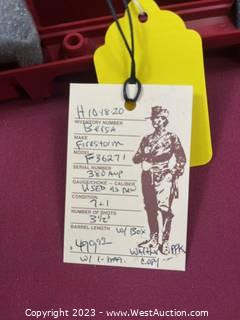 H 10-18-20
INVENTORY NUMBER
Bersa
MAKE
Firestorm
MODEL
F36271
SERIAL NUMBER
380 Acp
GAUGE/CHOKE - CALIBER
USED AS NEW
CONDITION
7+1
NUMBER OF SHOTS
3½" w/ Box
BARREL LENGTH
Walther PPK
w/ 1-mag. Copy
Copyright 2023 - www.BidCal.com